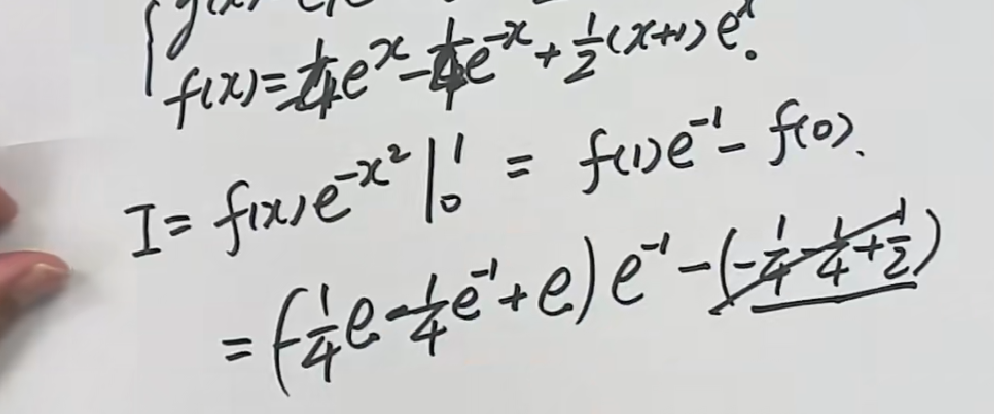 f(x)=-1/4e^x-1/4e^{-x}+1/2(x+1)e^x.
I=f(x)e^{-x^2}|_0^1=f(1)e^{-1}-f(0).
=(-1/4e-1/4e^{-1}+e)e^{-1}-(-1/4-1/4+1/2)